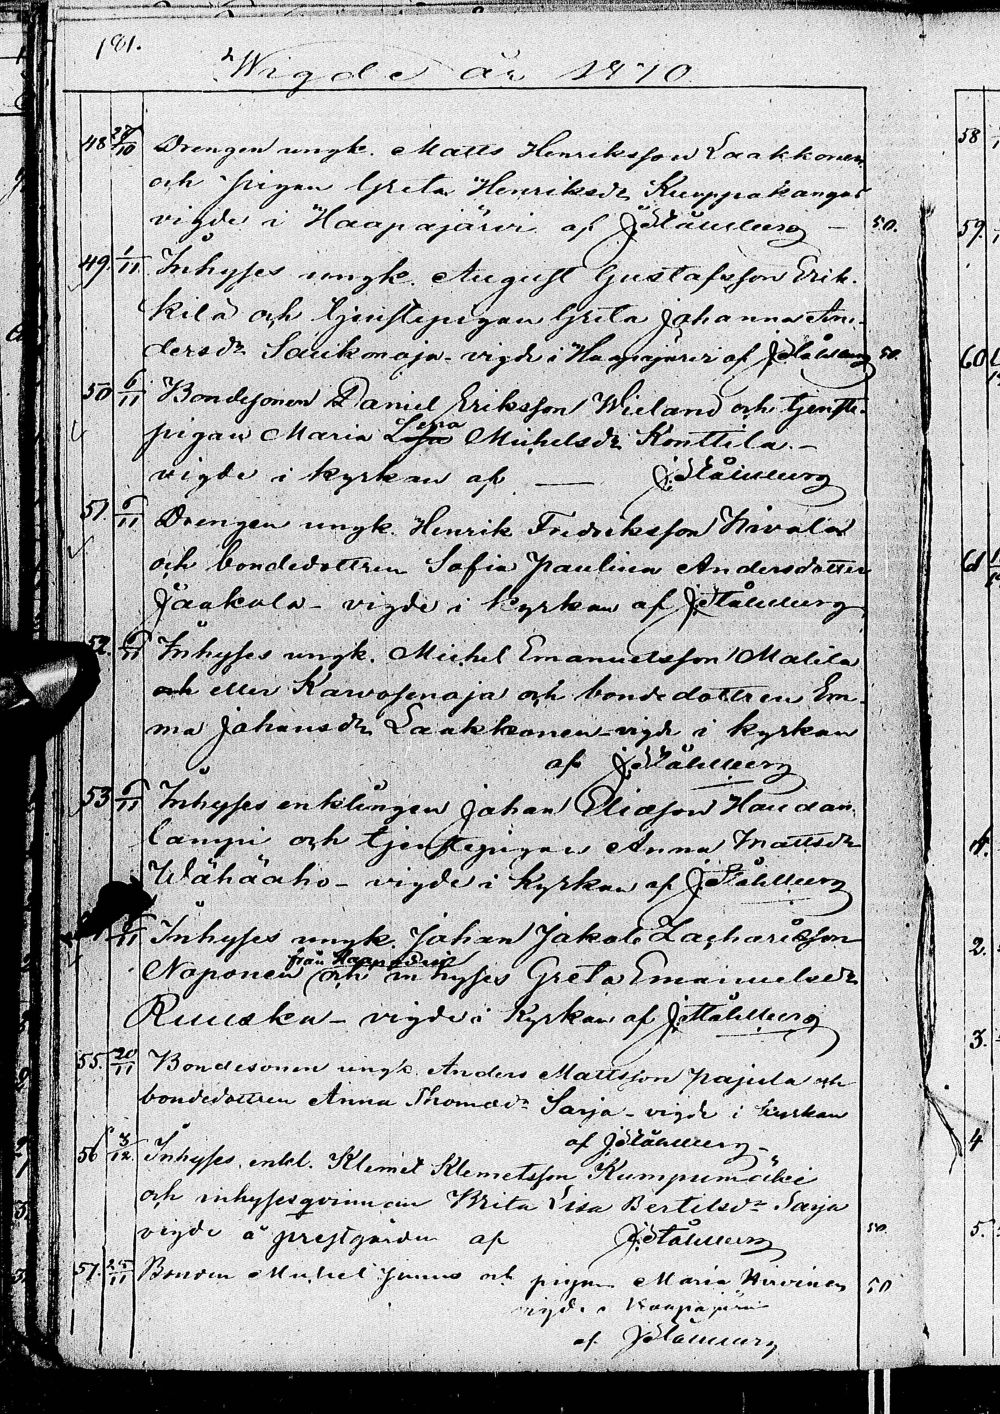 181.
Wigde år 1870
48 28/10 Drengen ungk. Matts Henriksson Laakkonen
och pigan Greta Henriksdr Kuoppakangas
vigde i Haapajärvi af J. Stålberg — 50.
49. 1/11 Inhyses ungk. August Gustafsson Erik-
kilä och tjenstepigan Greta Johanna An-
dersdr Saukonoja - vigde i Haapajärvi af J Stålberg 50
50 6/11 Bondesonen Daniel Eriksson Wieland och tjenste-
pigan Maria Lisa Lena Michelsdr Konttila —
vigde i kyrkan af — J. Stålberg
51. 6/11 Drengen ungk. Henrik Fredriksson Nivala
och bondedottren Sofia Paulina Andersdotter
Jaakola - vigde i kyrkan af J. Stålberg
52. 6/11 Inhyses ungk. Michel Emanuelsson Malila
och eller Karvosenoja och bondedottren Em-
ma Johansdr Laakkonen - vigde i kyrkan
af J. Stålberg
53 6/11 Inhyses enklingen Johan Eliasson Haudan-
lampi och tjenstepigan Anna Mattsdr
Wähäaho - vigde i kyrkan af J. Stålberg
/11 Inhyses ungk. Johan Jakob Zachariasson
från Haapajärvi
Naponen och inhyses Greta Emanuelsdr
Ruuska - vigde i kyrkan af J. Stålberg
55. 20/11 Bondesonen ungk. Anders Mattsson Pajula och
bondedottren Anna Thomasdr Sarja - vigde i kyrkan
af J. Stålberg -
56 3/12 Inhyses enkl. Klemet Klemetsson Kumpumäki
och inhysesqvinnan Brita Lisa Bertilsdr Sarja
vigde å prestgården af J. Stålberg 50
57. 25/11 Bonden Michel Junno och pigan Maria Hirvinen 50
vigde i Haapajärvi
af J. Stålberg
58
59.
60
61
2.
3.
4
5.